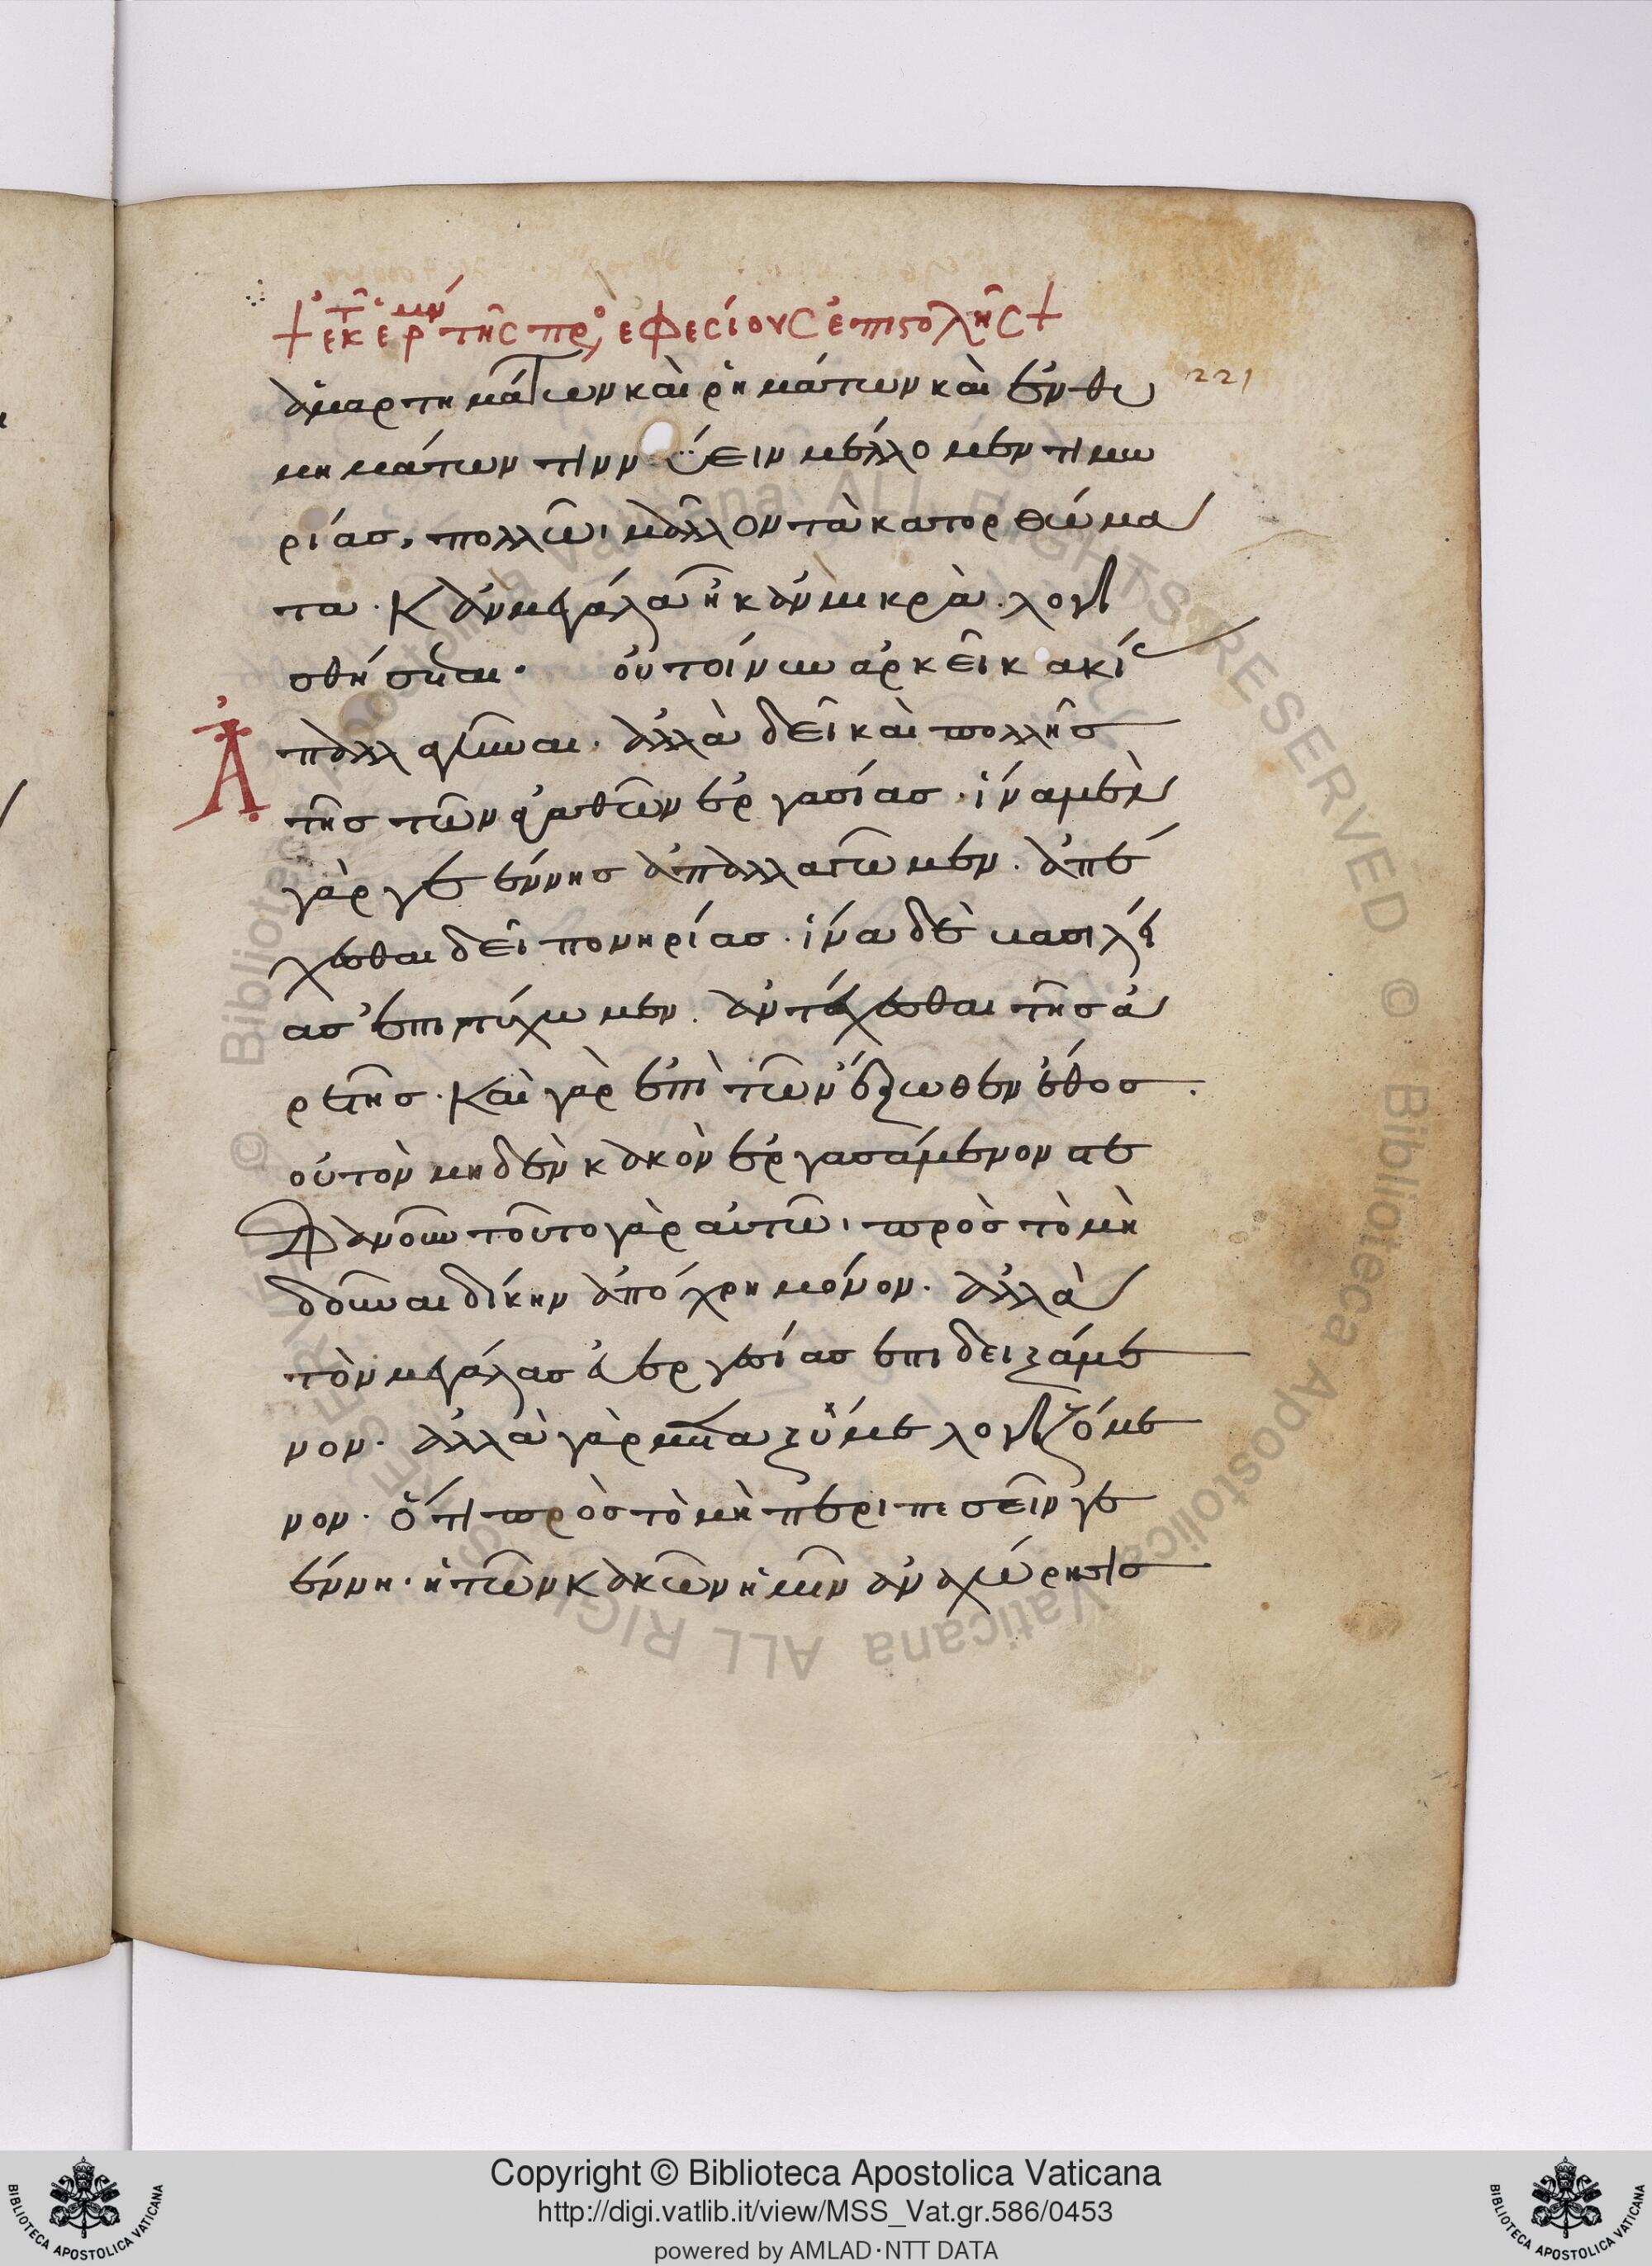 + ἐκ τῆς ἑρμην τῆς πρὸς ἐφεσίους ἐπιστολῆς +
221
ἁμαρτημάτων καὶ ῥημάτων καὶ ἐνθυ
μημάτων τιννύειν μέλλομεν τιμω
ρίας, πολλῶι μᾶλλον τὰ κατορθώμα
τα. κἂν μεγάλα ἢ κἂν μικρὰ. λογι
σθήσεται. οὐ τοίνυν ἀρκεῖ κακίας
Ἀπαλλαγῆναι. ἀλλὰ δεῖ καὶ πολλῆς
τῆς τῶν ἀγαθῶν ἐργασίας. ἵνα μὲν
γὰρ γεέννης ἀπαλλαγῶμεν. ἀπέ
χεσθαι δεῖ πονηρίας. ἵνα δὲ βασιλεί
ας ἐπιτύχωμεν. ἀντέχεσθαι τῆς ἀ
ρετῆς. Καὶ γὰρ ἐπὶ τῶν ἔξωθεν ἔθος
οὐ τὸν μηδὲν κακὸν ἐργασάμενον στε
φανοῦν τοῦτο γὰρ αὐτῶι πρὸς τὸ μὴ
δοῦναι δίκην ἀπόχρη μόνον. ἀλλὰ
τὸν μεγάλας εὐεργεσίας ἐπιδειξάμε
νον. ἀλλὰ γὰρ μεταξύ με λογιζόμε
νον. ὅτι πρὸς τὸ μὴ περιπεσεῖν γε
έννη. ἡ τῶν κακῶν ἡμῖν ἀναχώρησις
Copyright © Biblioteca Apostolica Vaticana
http://digi.vatlib.it/view/MSS_Vat.gr.586/0453
powered by AMLAD·NTT DATA
BIBLIOTECA APOSTOLICA VATICANA
BIBLIOTECA APOSTOLICA VATICANA